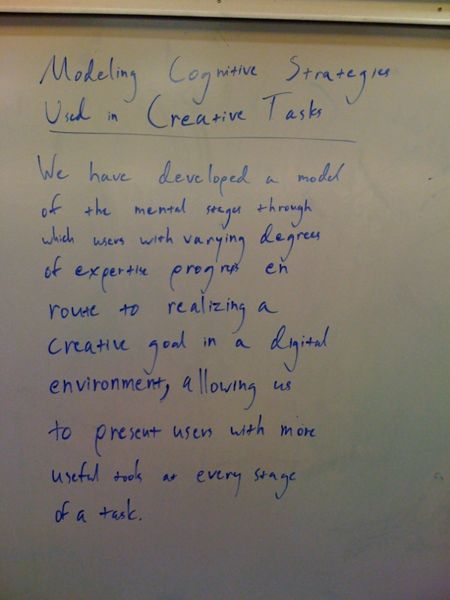 Modeling Cognitive Strategies
Used in Creative Tasks
We have developed a model
of the mental stages through
which users with varying degrees
of expertise progress en
route to realizing a
creative goal in a digital
environment, allowing us
to present users with more
useful tools at every stage
of a task.